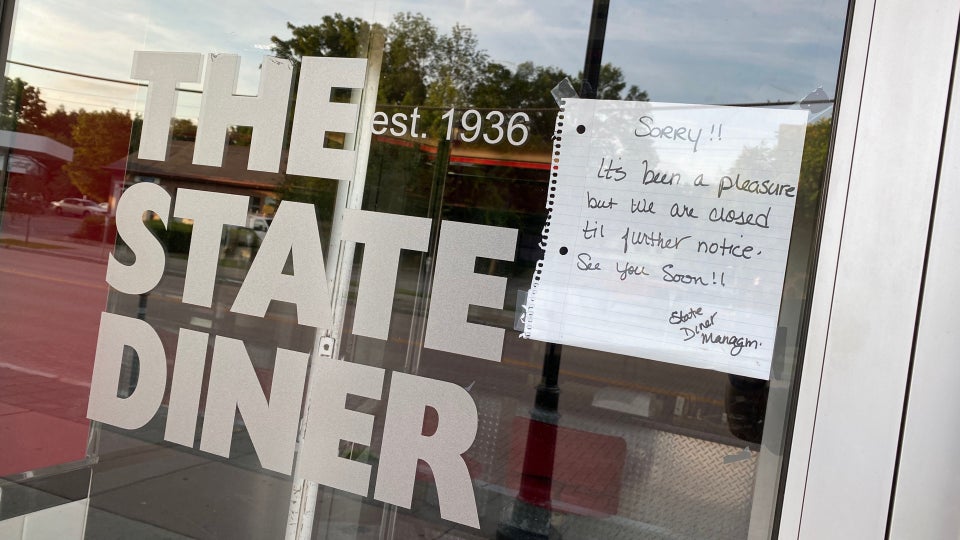 THE
est. 1936
STATE
DINER
Sorry!!
It's been a pleasure
but we are closed
til further notice.
See you Soon!!
State
Diner
Managm.